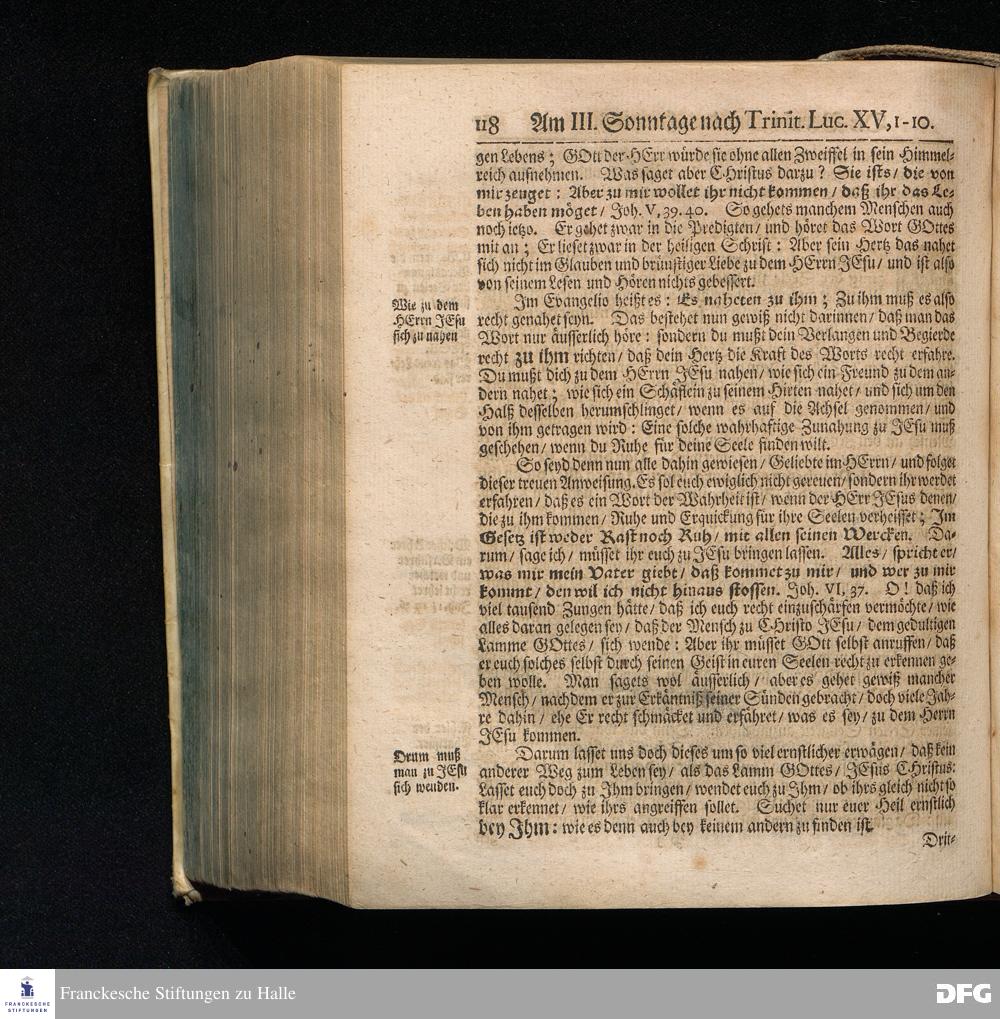 118 Am III. Sonntage nach Trinit. Luc. XV, 1-10.
gen Lebens; GOtt der HErr würde sie ohne allen Zweiffel in sein Himmel-
reich aufnehmen. Was saget aber CHristus darzu? Sie ists/ die von
mir zeuget: Aber zu mir wollet ihr nicht kommen/ daß ihr das Le-
ben haben möget/ Joh. V, 39. 40. So gehets manchem Menschen auch
noch ietzo. Er gehet zwar in die Predigten/ und höret das Wort GOttes
mit an; Er lieset zwar in der heiligen Schrift: Aber sein Hertz das nahet
sich nicht im Glauben und brünstiger Liebe zu dem HErrn JEsu/ und ist also
von seinem Lesen und Hören nichts gebessert.
Wie zu dem
HErrn JEsu
sich zu nahen
Im Evangelio heißt es: Es naheten zu ihm; Zu ihm muß es also
recht genahet seyn. Das bestehet nun gewiß nicht darinnen/ daß man das
Wort nur äusserlich höre: sondern du mußt dein Verlangen und Begierde
recht zu ihm richten/ daß dein Hertz die Kraft des Worts recht erfahre.
Du mußt dich zu dem HErrn JEsu nahen/ wie sich ein Freund zu dem an-
dern nahet; wie sich ein Schäflein zu seinem Hirten nahet/ und sich um den
Halß desselben herumschlinget/ wenn es auf die Achsel genommen/ und
von ihm getragen wird: Eine solche wahrhaftige Zunahung zu JEsu muß
geschehen/ wenn du Ruhe für deine Seele finden wilt.
So seyd denn nun alle dahin gewiesen/ Geliebte im HErrn/ und folget
dieser treuen Anweisung. Es sol euch ewiglich nicht gereuen/ sondern ihr werdet
erfahren/ daß es ein Wort der Wahrheit ist/ wenn der HErr JEsus denen/
die zu ihm kommen/ Ruhe und Erquickung für ihre Seelen verheisset; Im
Gesetz ist weder Rast noch Ruh/ mit allen seinen Wercken. Da-
rum/ sage ich/ müsset ihr euch zu JEsu bringen lassen. Alles/ spricht er/
was mir mein Vater giebt/ daß kommet zu mir/ und wer zu mir
kommt/ den wil ich nicht hinaus stossen. Joh. VI, 37. O! daß ich
viel tausend Zungen hätte/ daß ich euch recht einzuschärfen vermöchte/ wie
alles daran gelegen sey/ daß der Mensch zu CHristo JEsu/ dem gedultigen
Lamme GOttes/ sich wende: Aber ihr müsset GOtt selbst anruffen/ daß
er euch solches selbst durch seinen Geist in euren Seelen recht zu erkennen ge-
ben wolle. Man sagets wol äusserlich/ aber es gehet gewiß mancher
Mensch/ nachdem er zur Erkäntniß seiner Sünden gebracht/ doch viele Jah-
re dahin/ ehe Er recht schmäcket und erfähret/ was es sey/ zu dem Herrn
JEsu kommen.
Drum muß
man zu JEsu
sich wenden.
Darum lasset uns doch dieses um so viel ernstlicher erwägen/ daß kein
anderer Weg zum Leben sey/ als das Lamm GOttes/ JEsus CHristus:
Lasset euch doch zu Ihm bringen/ wendet euch zu Ihm/ ob ihrs gleich nicht so
klar erkennet/ wie ihrs angreiffen sollet. Suchet nur euer Heil ernstlich
bey Ihm: wie es denn auch bey keinem andern zu finden ist.
Drit-
FRANCKESCHE
STIFTUNGEN
Franckesche Stiftungen zu Halle
DFG